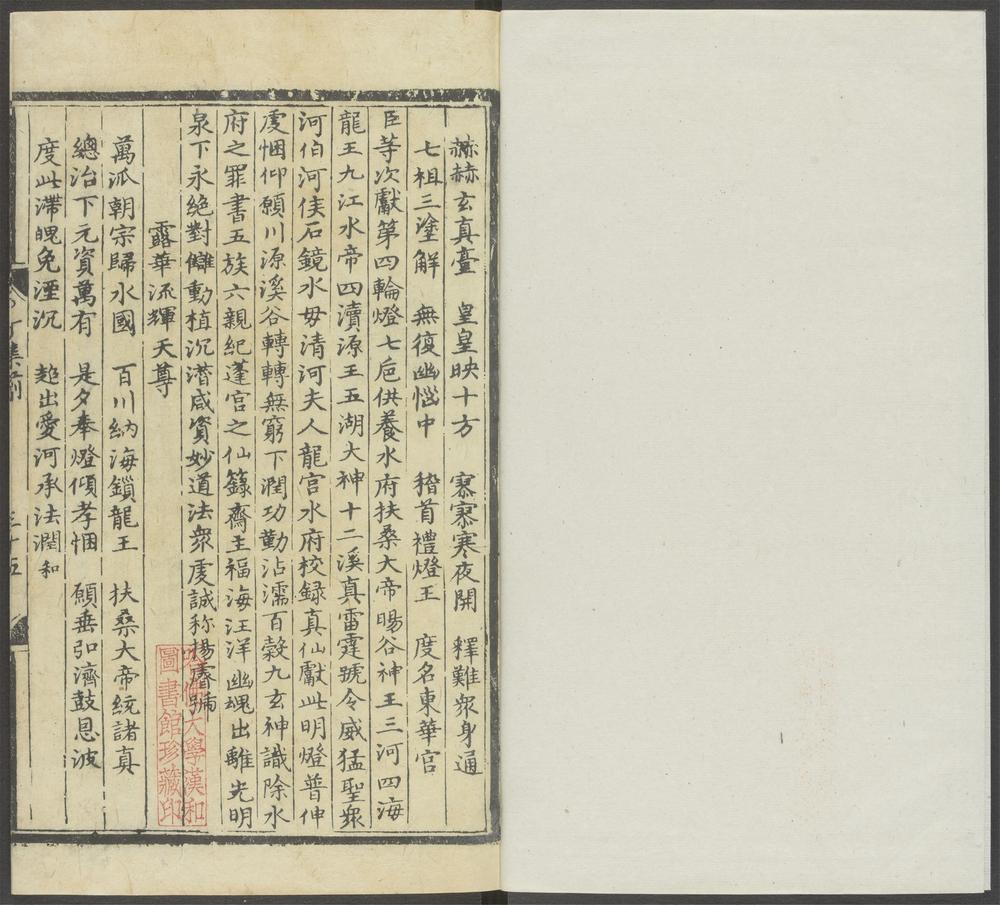 赫赫玄真臺　皇皇映十方　寥寥寒夜開　釋難衆身通
七祖三塗解　無復幽惱中　稽首禮燈王　度名東華宮
臣等次獻第四輪燈七卮供養水府扶桑大帝暘谷神王三河四海
龍王九江水帝四瀆源王五湖大神十二溪真雷霆號令威猛聖衆
河伯河侯石鏡水母清河夫人龍宮水府校録真仙獻此明燈普伸
虔悃仰願川源溪谷轉轉無窮下潤功勤沾濡百糓九玄神識除水
府之罪書五族六親紀蓬宮之仙籙齋主福海汪洋幽魂出離光明
泉下永絶對讎動植沉潜咸資妙道法衆虔誠称揚睿號
露華流輝天尊
萬泒朝宗歸水國　百川納海鎖龍王　扶桑大帝統諸真
總治下元資萬有　是夕奉燈傾孝悃　願垂弘濟鼓恩波
度此滯魄免湮沉　超出愛河承法潤和
三十五
大學漢和
圖書館珍藏印